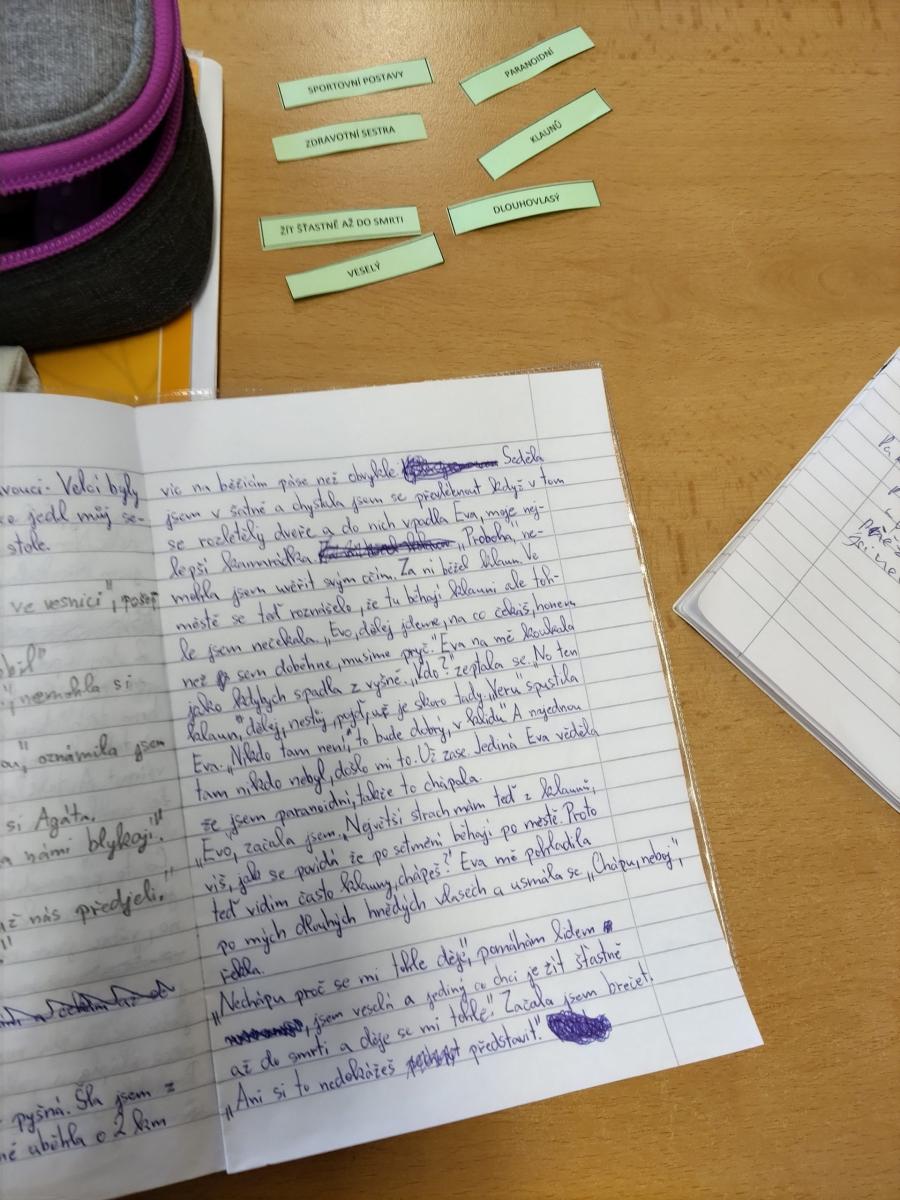 SPORTOVNÍ POSTAVY
PARANOIDNÍ
ZDRAVOTNÍ SESTRA
KLAUNŮ
ŽÍT ŠŤASTNĚ AŽ DO SMRTI
DLOUHOVLASÝ
VESELÝ
Velcí byly
jedl můj se-
stole.
ve vesnici",
nemohla si
oznámila jsem
si Agáta.
námi blýkají".
nás předjeli."
pyšná. Šla jsem z
uběhla o 2 km
víc na běžícím páse než obvykle Seděla
jsem v šatně a chystala jsem se převléknout když v tom
se rozletěly dveře a do nich vpadla Eva, moje nej-
lepší kamarádka „Proboha," ne-
mohla jsem uvěřit svým očím. Za ní běžel klaun. Ve
městě se teď roznášelo, že tu běhají klauni ale toh-
le jsem nečekala. „Evo, dělej jdeme, na co čekáš, honem
než sem doběhne, musíme pryč." Eva na mě koukala
jako kdybych spadla z vyšně. „Kdo?" zeptala se. „No ten
klaun", dělej, nestůj, pojď, už je skoro tady. „Veru" spustila
Eva. „Nikdo tam není, to bude dobrý, v klidu" A najednou
tam nikdo nebyl, došlo mi to. Už zase. Jediná Eva věděla
že jsem paranoidní, takže to chápala.
„Evo, začala jsem. „Největší strach mám teď z klaunů,
víš, jak se povídá že po setmění běhají po městě. Proto
teď vidím často klauny, chápeš?" Eva mě pohladila
po mých dlouhých hnědých vlasech a usmála se „Chápu, neboj",
řekla.
„Nechápu proč se mi tohle děje", pomáhám lidem
, jsem veselá a jediný co chci je žít šťastně
až do smrti a děje se mi tohle." Začala jsem brečet.
„Ani si to nedokážeš představit."